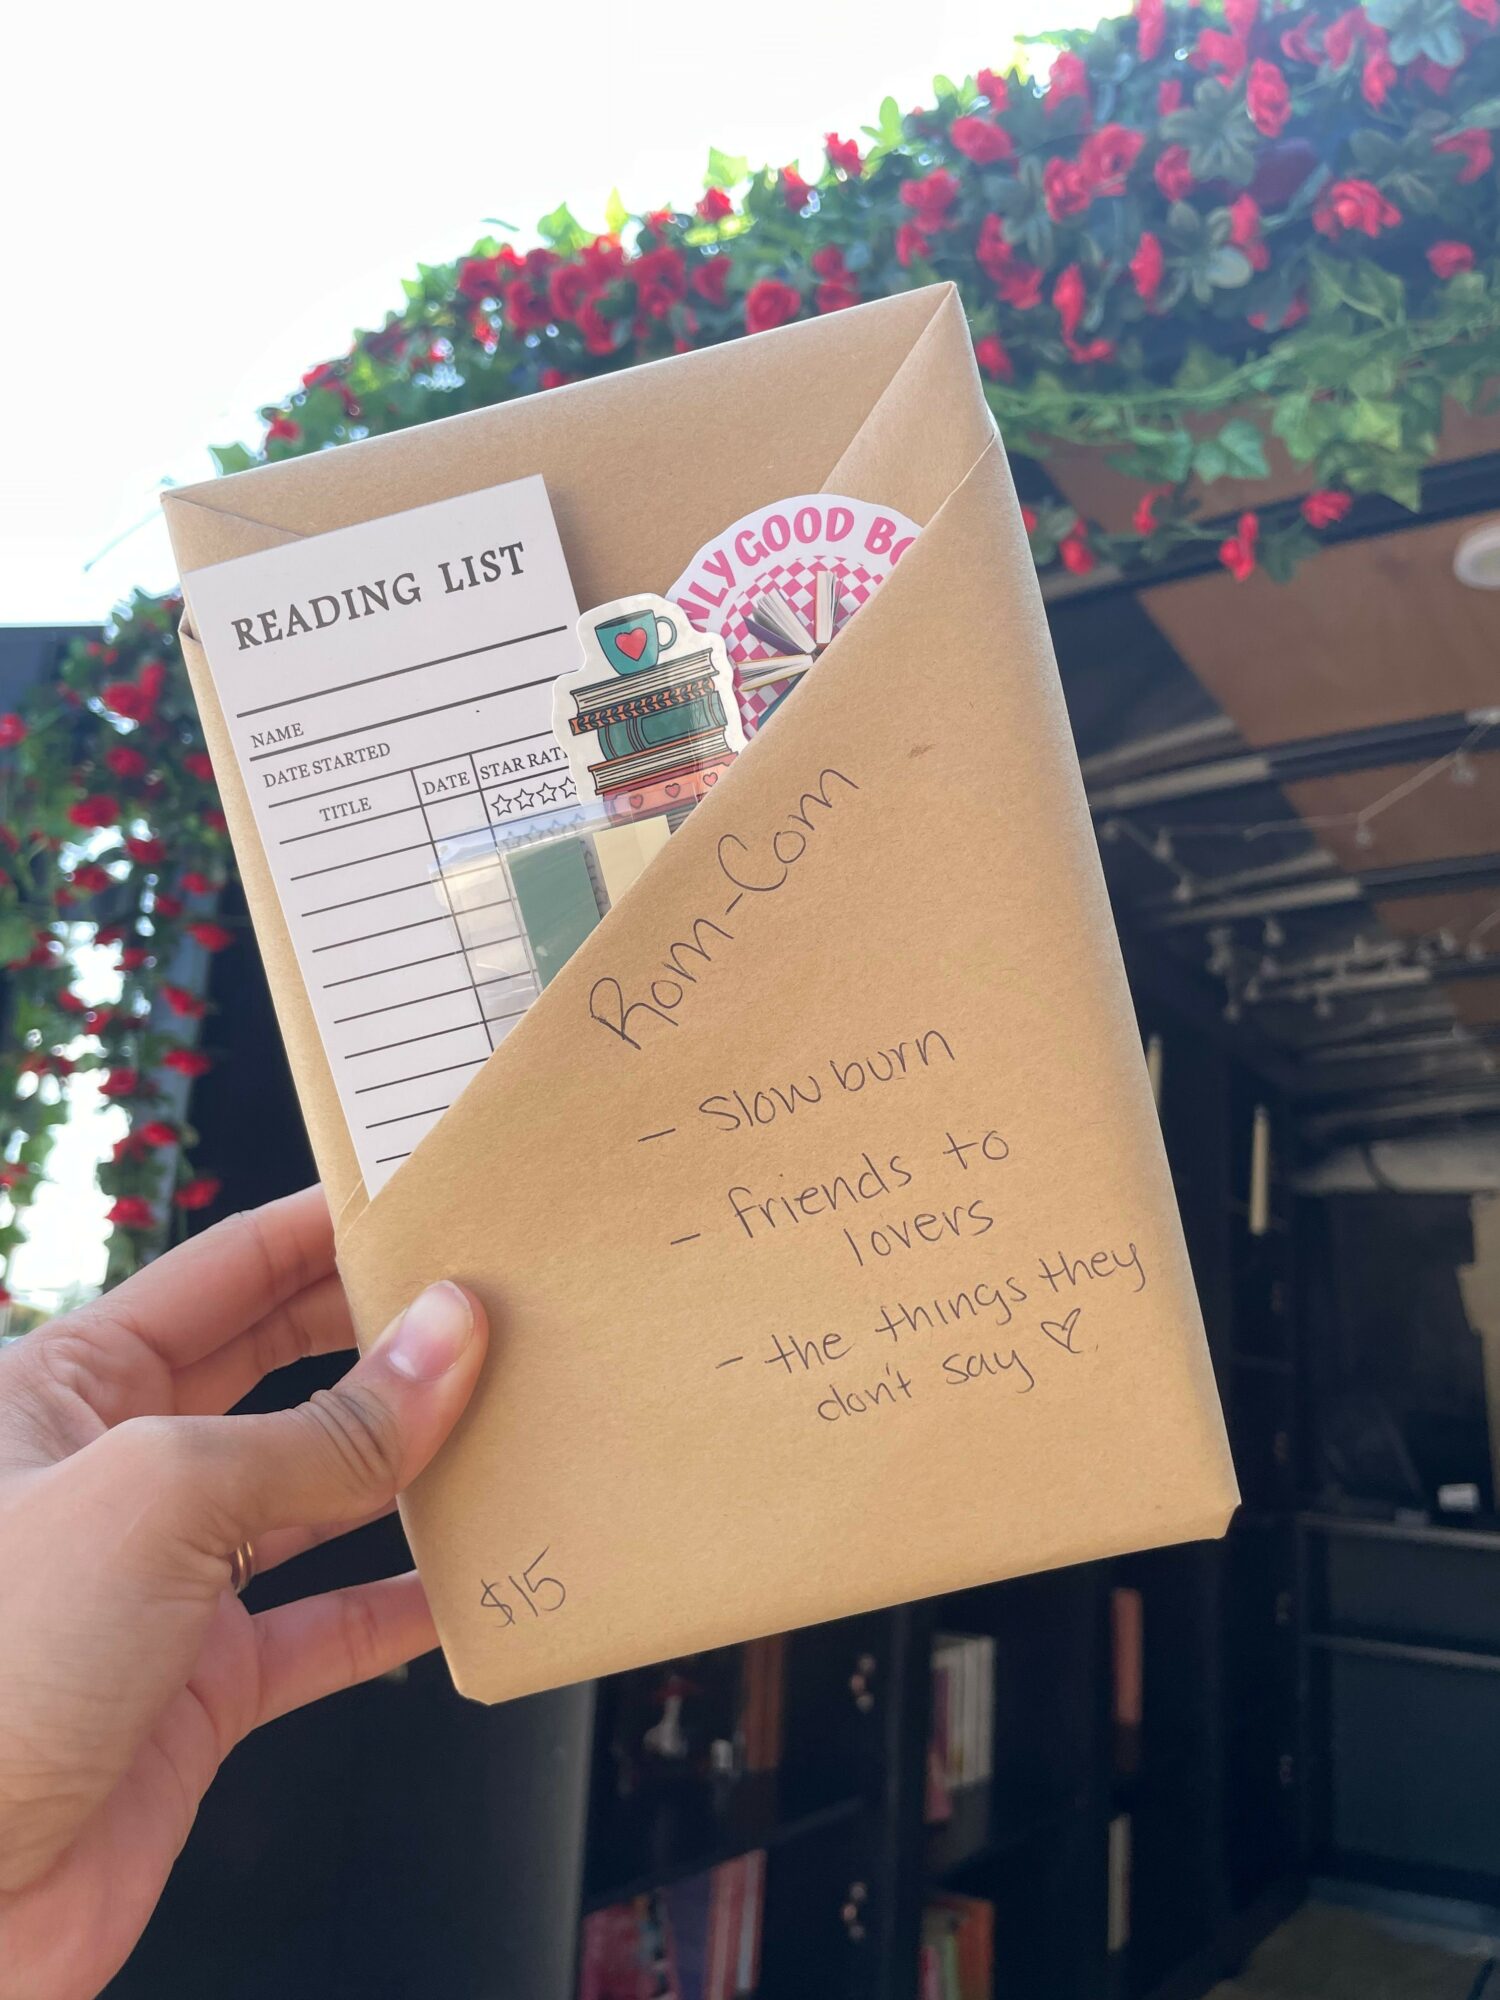 READING LIST
NAME
DATE STARTED
TITLE DATE STAR RATI
NLY GOOD BO
Rom-Com
- Slow burn
- friends to
lovers
- the things they
don't say ♡
$15